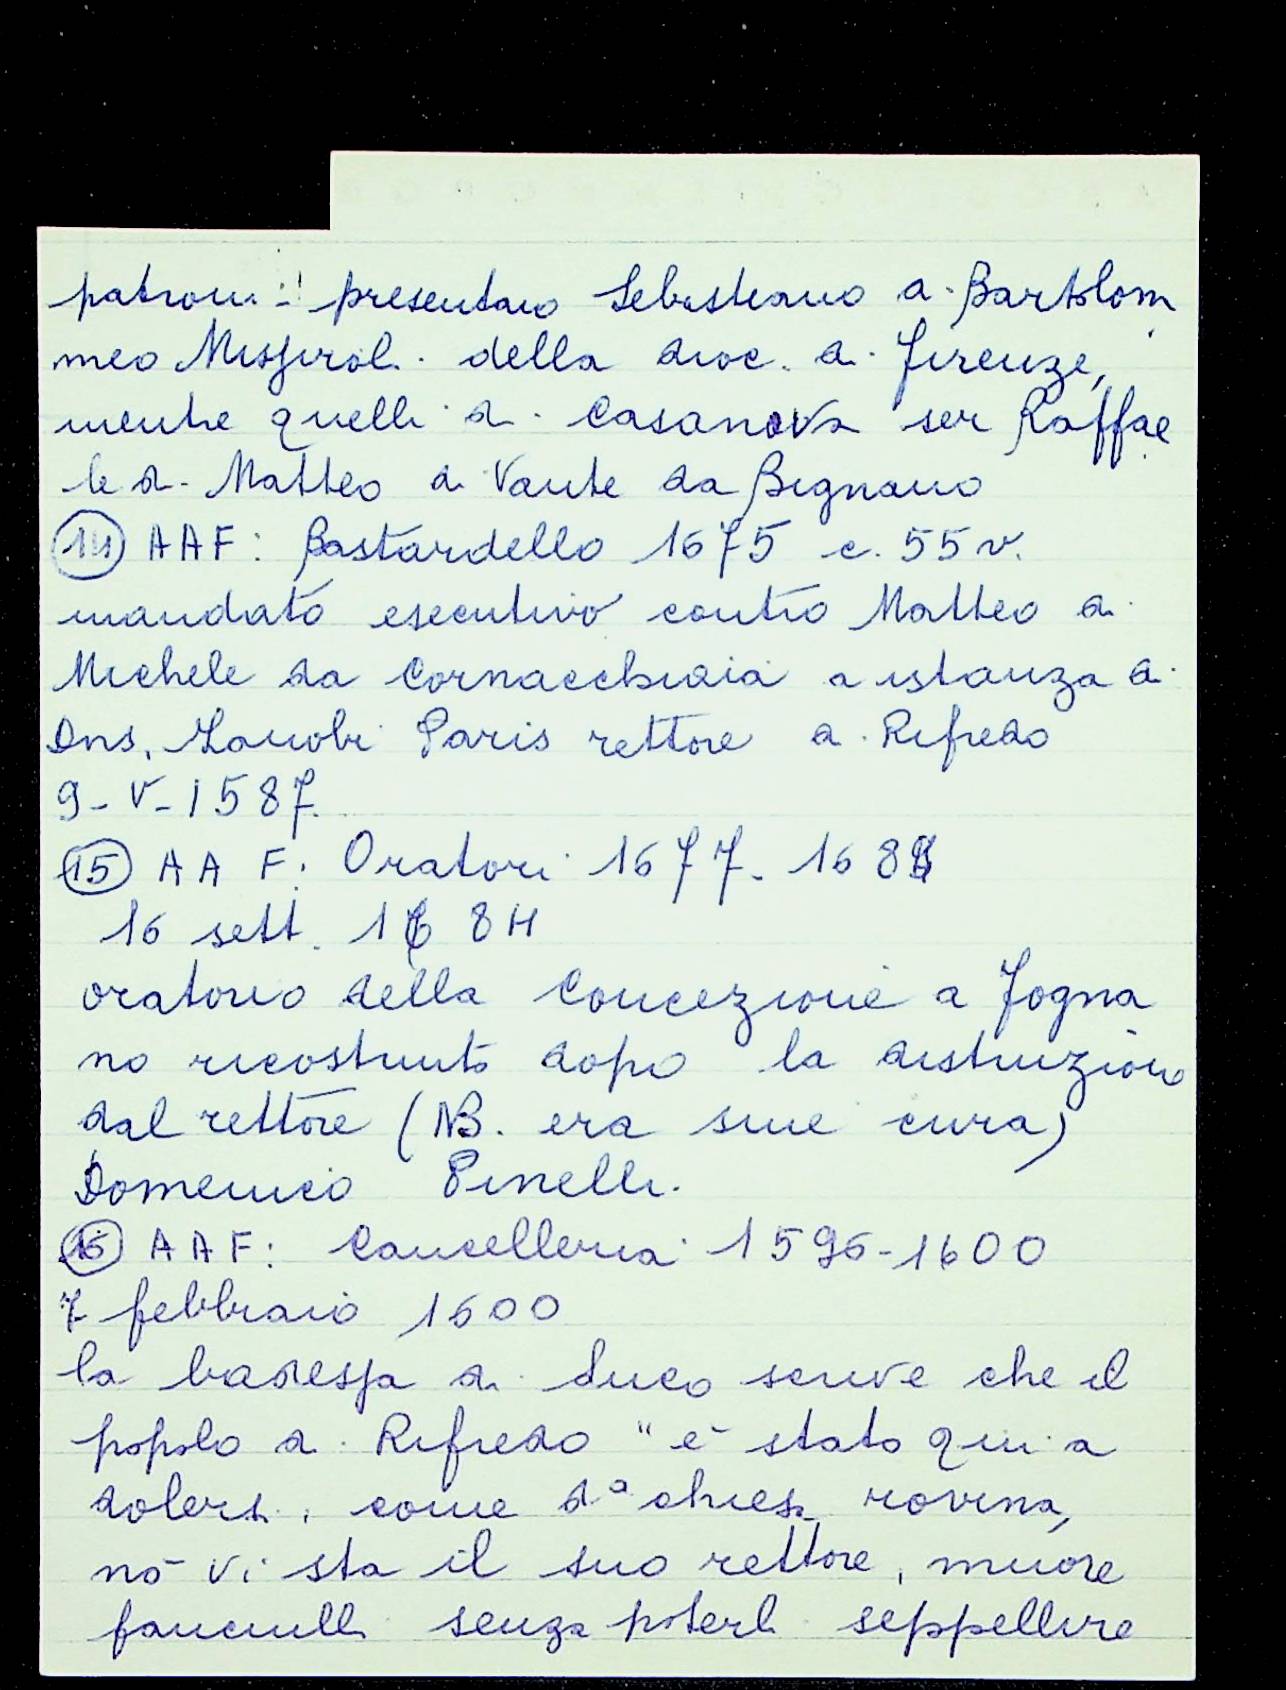 patroni presentano Sebastiano di Bartolom
meo Misfiroli della dioc. di Firenze,
mentre quelli di Casanova ser Raffae
le di Matteo di Vante da Bignano
(14) AAF: Bastardello 1675 c. 55v.
mandato esecutivo contro Matteo di
Michele da Cornacchiaia a istanza di
Dns. Zanobi Paris rettore di Rifredo
9-V-1587.
(15) AAF: Oratori 1677-168
16 sett. 1684
oratorio della Concezione a Fogna
no ricostruito dopo la distruzione
dal rettore (NB. era sine cura)
Domenico Pinelli.
(16) AAF: Cancelleria 1596-1600
7 febbraio 1600
la badessa di Luco scrive che il
popolo di Rifredo "è stato qui a
dolersi, come dª chiesa rovina,
nō vi sta il suo rettore, muore
fanciulli senza poterli seppellire